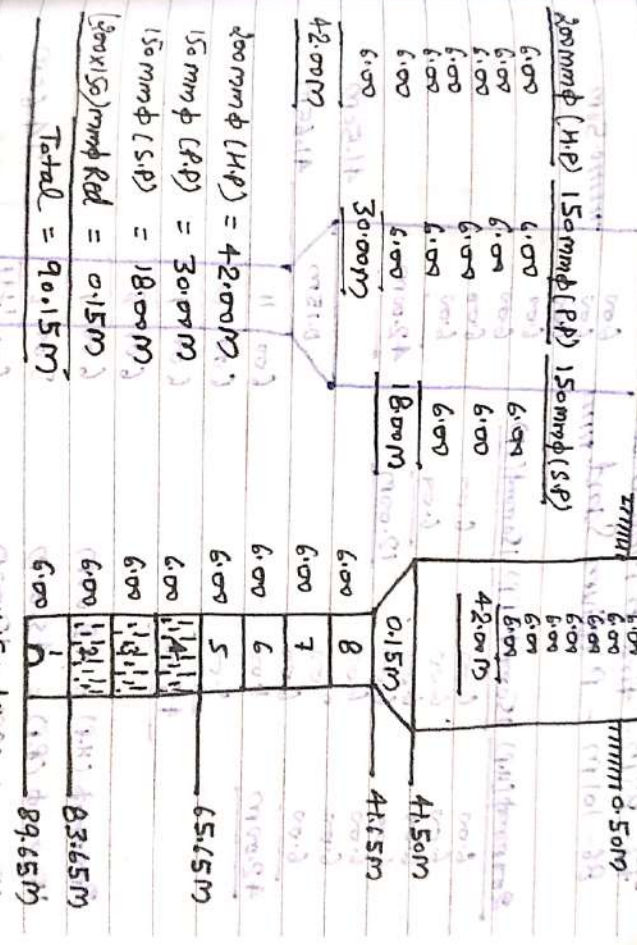 200mmϕ (H.P) 150mmϕ (P.P) 150mmϕ (S.P)
6.00 6.00 6.00
6.00 6.00 6.00
6.00 6.00 6.00
6.00 6.00 18.00M
6.00 6.00
6.00 30.00M
6.00
42.00M
200mmϕ (H.P) = 42.00M
150mmϕ (P.P) = 30.00M
150mmϕ (S.P) = 18.00M
(200x150)mmϕ Red = 0.15M
Total = 90.15M
0.50M
6.00
6.00
6.00
6.00
6.00
6.00
6.00
42.00M
41.50M
0.15M
41.65M
6.00 8
6.00 7
6.00 6
6.00 5
65.65M
6.00 4
6.00 3
6.00 2
83.65M
6.00 1
89.65M